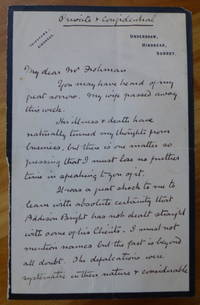 Private & Confidential
UNDERSHAW,
HINDHEAD,
SURREY.
My dear Mr Frohman
You may have heard of my
great sorrow. My wife passed away
this week.
Her illness & death have
naturally turned my thoughts from
business, but there is one matter so
pressing that I must lose no further
time in speaking to you of it.
It was a great shock to me to
learn with absolute certainty that
Addison Bright has not dealt straight
with some of his clients. I must not
mention names but the fact is beyond
all doubt. The defalcations were
systematic in their nature & considerable